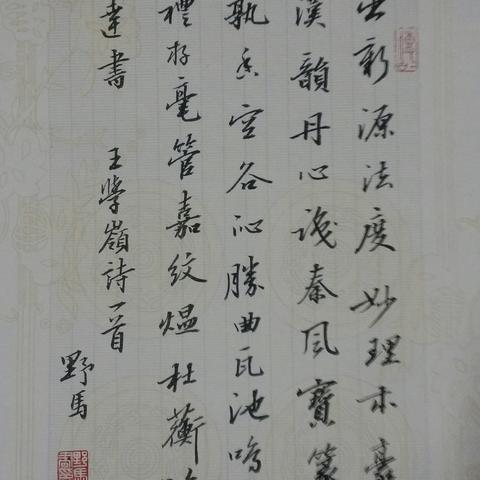 出新源法度妙理求
漢韻丹心識秦風寶篆
孰杏空谷沁勝曲瓦池鳴
禮存毫管嘉紋煴杜蘅
達書 王學嶺詩一首
野馬